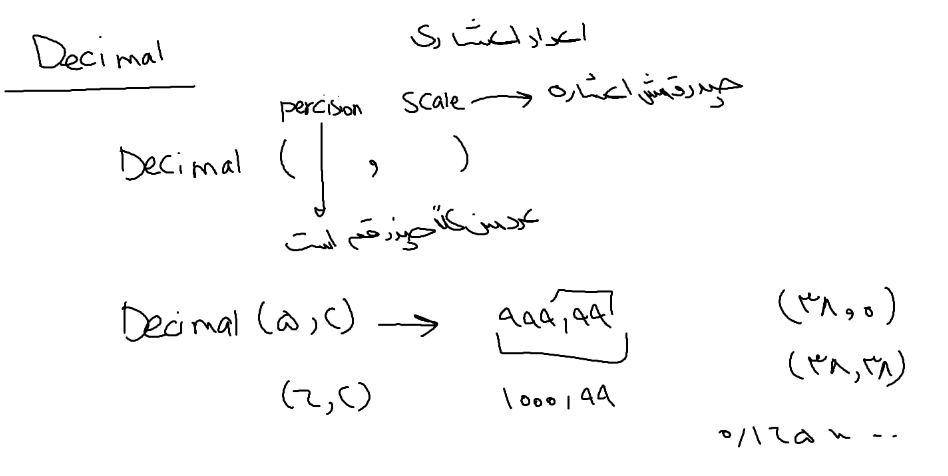 Decimal اعداد اعشاری
percision scale → چند رقمش اعشاره
Decimal ( , )
عددمون کلاً چند رقم است
Decimal (۵,۲) → ۹۹۹,۹۹ (۳۸,۰)
(۳۸,۳۸)
(۶,۲) ۱۰۰۰,۹۹
۰/۱۲۵۸...